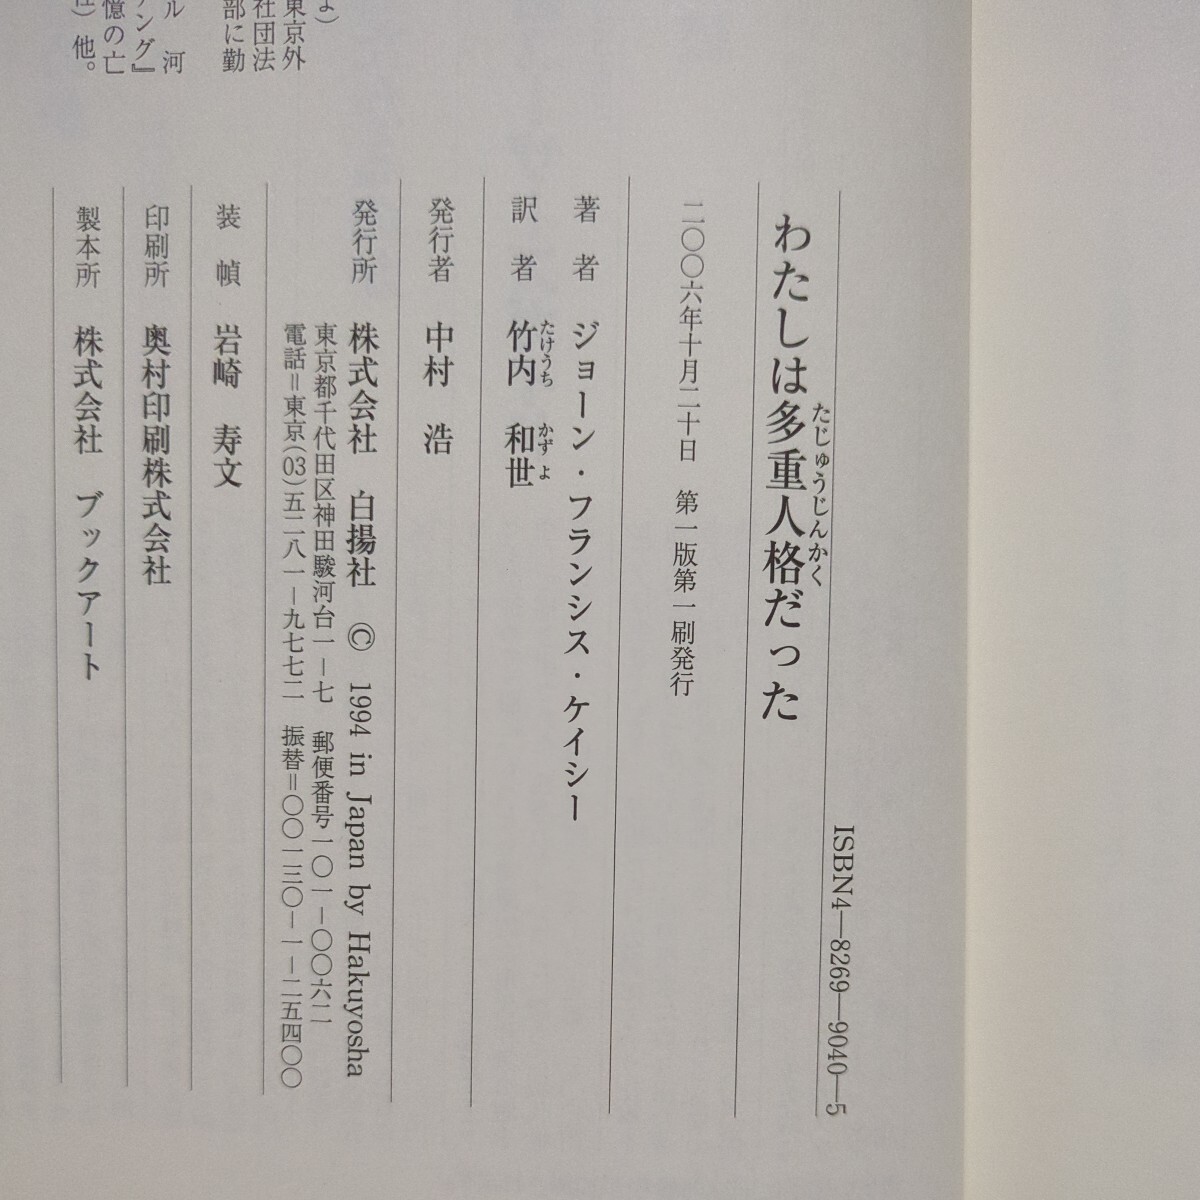 ょ）
東京外
社団法
部に勤
ル 河
ング』
憶の亡
社）他。
ISBN4―8269―9040―5
わたしは多重人格だった
たじゅうじんかく
二〇〇六年十月二十日 第一版第一刷発行
著者 ジョーン・フランシス・ケイシー
訳者 竹内 和世
たけうち かずよ
発行者 中村 浩
発行所 株式会社 白揚社 © 1994 in Japan by Hakuyosha
東京都千代田区神田駿河台一―七 郵便番号一〇一―〇〇六二
電話＝東京(03)五二八一―九七七二 振替＝〇〇一三〇―一―二五四〇〇
装幀 岩崎 寿文
印刷所 奥村印刷株式会社
製本所 株式会社 ブックアート